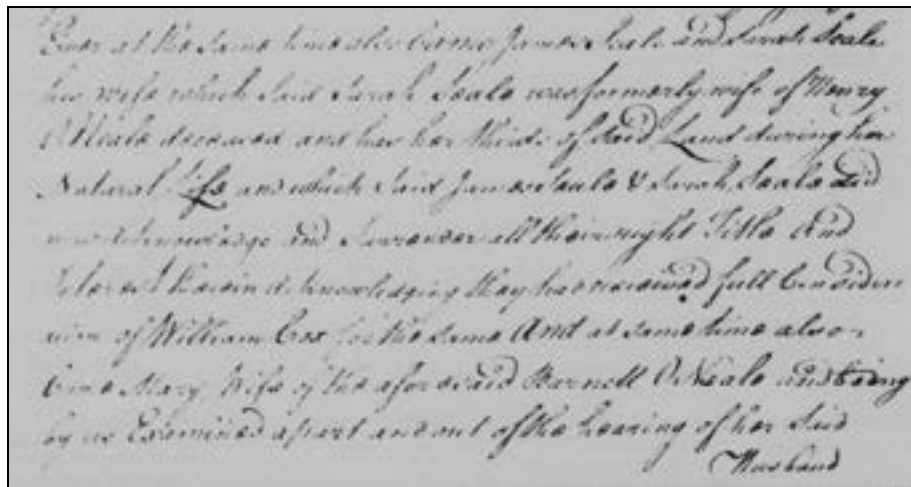 Ever at the same time also Came James Seale and Sarah Seale
his wife which said Sarah Seale was formerly wife of Henry
ONeale deceased and has her thirds of said Land during her
Natural Life and which said James Seale & Sarah Seale did
now acknowledge and Surrender all their right Title And
Interest therein acknowledging they has received full Consider
ation of William Cox for the same And at same time also
Came Mary Wife of the aforesaid Barnett ONeale and being
by us Examined apart and out of the hearing of her said
Husband